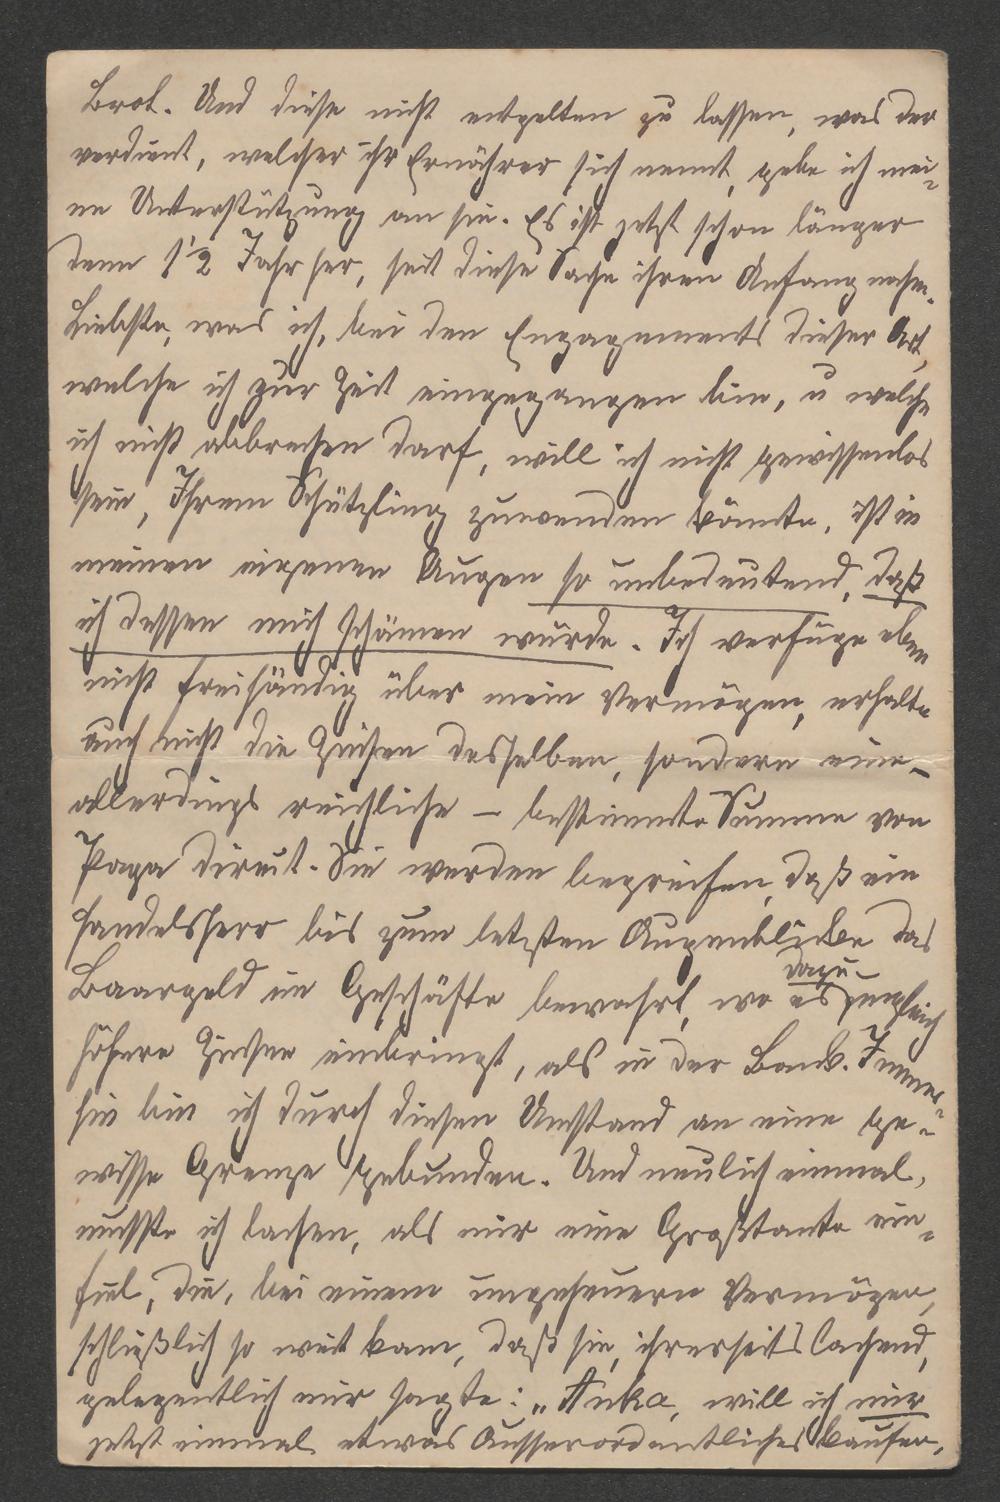 Brot. Und diese nicht entgelten zu lassen, was der
verdient, welcher ihr Ernährer sich nennt, gebe ich mei-
ne Unterstützung an sie. Es ist jetzt schon länger
denn 1½ Jahr her, seit diese Sache ihren Anfang nahm.
Liebste, was ich, bei den Engagements dieser Art,
welche ich zur Zeit eingegangen bin, u welche
ich nicht abbrechen darf, will ich nicht gewissenlos
sein, Ihrem Schützling zuwenden könnte, ist in
meinen eigenen Augen so unbedeutend, daß
ich dessen mich schämen würde. Ich verfüge eben
nicht freihändig über mein Vermögen, erhalte
auch nicht die Zinsen desselben, sondern eine –
allerdings reichliche – bestimmte Summe von
Papa direct. Sie werden begreifen, daß ein
Handelsherr bis zum letzten Augenblicke das
Baargeld im Geschäfte bewahrt, wo es dazu zugleich
höhere Zinsen einbringt, als in der Bank. Immer-
hin bin ich durch diesen Umstand an eine ge-
wisse Grenze gebunden. Und neulich einmal,
musste ich lachen, als mir eine Großtante ein-
fiel, die, bei einem ungeheuern Vermögen,
schließlich so weit kam, daß sie, ihrerseits lachend,
gelegentlich mir sagte: „Anka, will ich mir
jetzt einmal etwas Ausserordentliches kaufen,